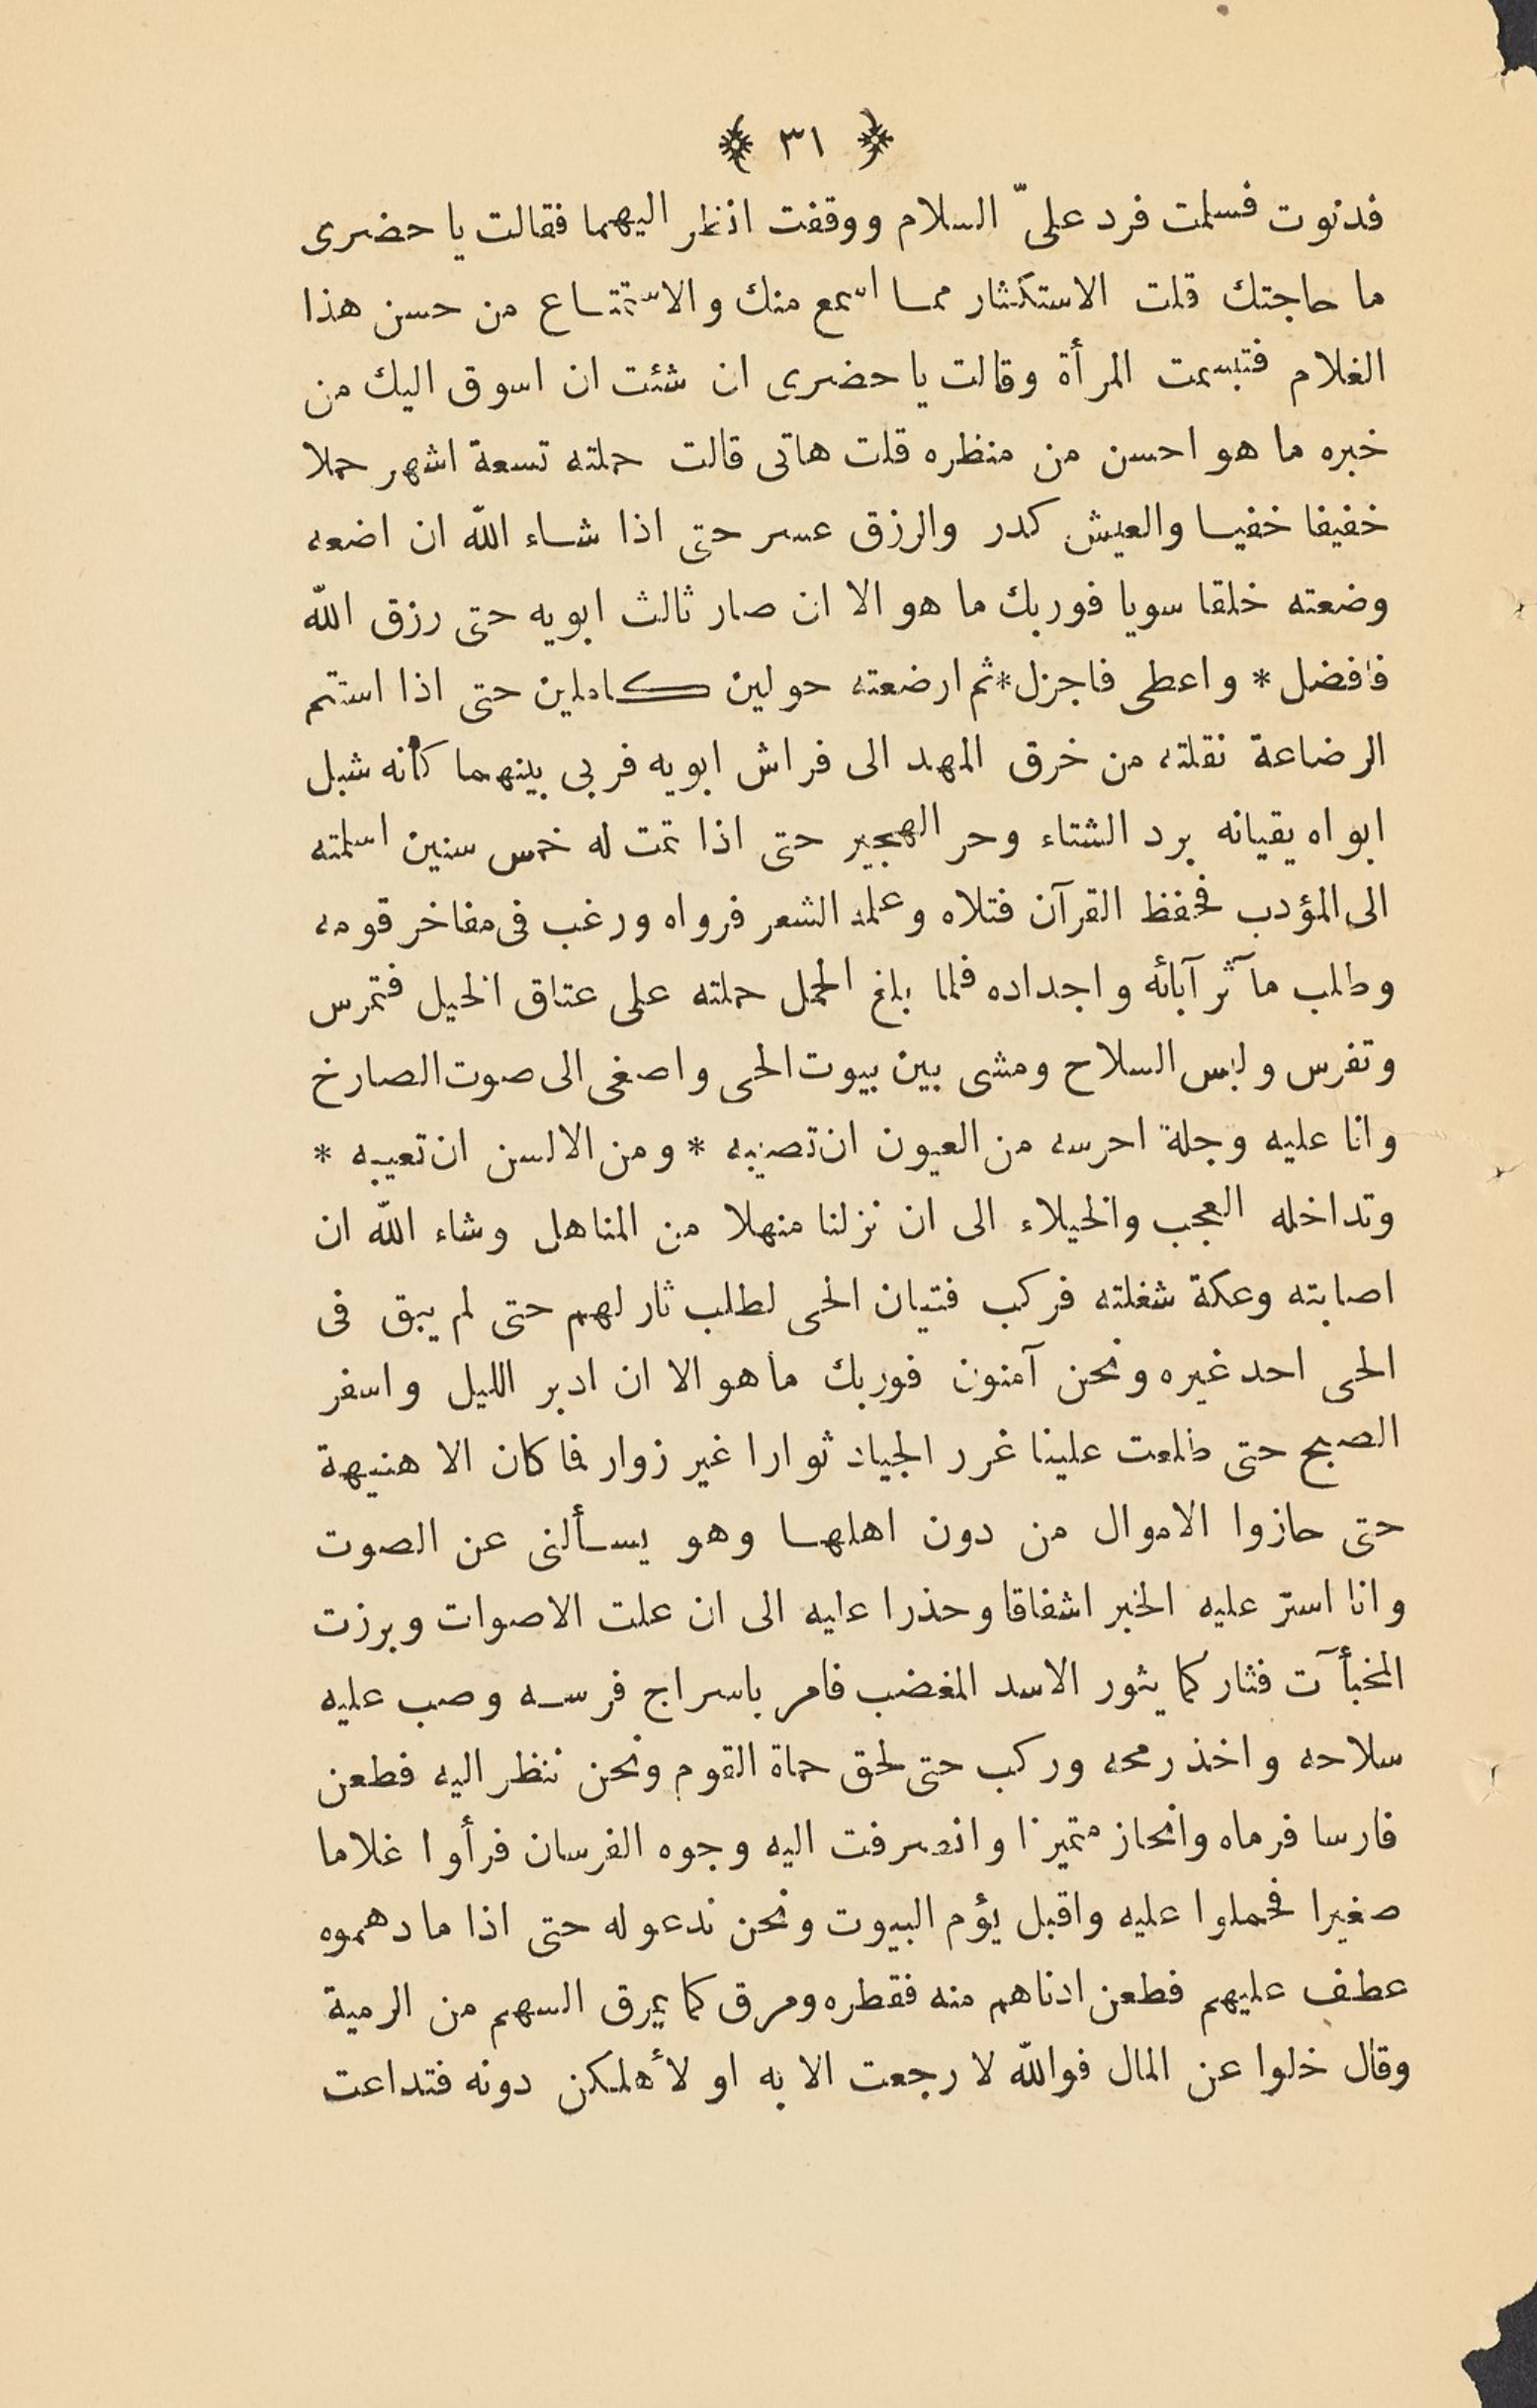 ﴿ ٣١ ﴾
فدنوت فسلمت فرد علىّ السلام ووقفت انظر اليهما فقالت يا حضرى
ما حاجتك قلت الاستكثار مما اسمع منك والاستمتاع من حسن هذا
الغلام فتبسمت المرأة وقالت يا حضرى ان شئت ان اسوق اليك من
خبره ما هو احسن من منظره قلت هاتى قالت حملته تسعة اشهر حملا
خفيفا خفيا والعيش كدر والرزق عسر حتى اذا شاء الله ان اضعه
وضعته خلقا سويا فوربك ما هو الا ان صار ثالث ابويه حتى رزق الله
فافضل * واعطى فاجزل * ثم ارضعته حولين كاملين حتى اذا استتم
الرضاعة نقلته من خرق المهد الى فراش ابويه فربى بينهما كأنه شبل
ابواه يقيانه برد الشتاء وحر الهجير حتى اذا تمت له خمس سنين اسلمته
الى المؤدب فحفظ القرآن فتلاه وعلمه الشعر فرواه ورغب فى مفاخر قومه
وطلب مآثر آبائه واجداده فلما بلغ الحمل حملته على عتاق الخيل فتمرس
وتفرس ولبس السلاح ومشى بين بيوت الحى واصغى الى صوت الصارخ
وانا عليه وجلة احرسه من العيون ان تصيبه * ومن الالسن ان تعيبه *
وتداخله العجب والخيلاء الى ان نزلنا منهلا من المناهل وشاء الله ان
اصابته وعكة شغلته فركب فتيان الحى لطلب ثار لهم حتى لم يبق فى
الحى احد غيره ونحن آمنون فوربك ما هو الا ان ادبر الليل واسفر
الصبح حتى طلعت علينا غرر الجياد ثوارا غير زوار فما كان الا هنيهة
حتى حازوا الاموال من دون اهلها وهو يسألنى عن الصوت
وانا استر عليه الخبر اشفاقا وحذرا عليه الى ان علت الاصوات وبرزت
المخبأآت فثار كما يثور الاسد المغضب فامر باسراج فرسه وصب عليه
سلاحه واخذ رمحه وركب حتى لحق حماة القوم ونحن ننظر اليه فطعن
فارسا فرماه وانحاز متميزا وانصرفت اليه وجوه الفرسان فرأوا غلاما
صغيرا فحملوا عليه واقبل يؤم البيوت ونحن ندعو له حتى اذا ما دهموه
عطف عليهم فطعن ادناهم منه فقطره ومرق كما يمرق السهم من الرمية
وقال خلوا عن المال فوالله لا رجعت الا به او لأهلكن دونه فتداعت